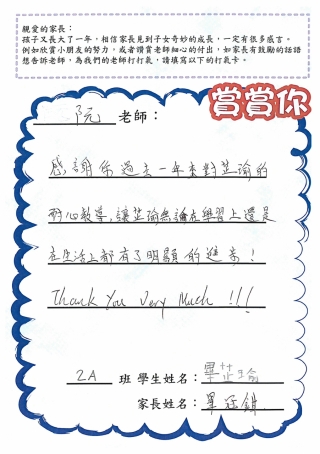 親愛的家長：
孩子又長大了一年，相信家長見到子女奇妙的成長，一定有很多感言。
例如欣賞小朋友的努力，或者讚賞老師細心的付出，如家長有鼓勵的話語
想告訴老師，為我們的老師打打氣，請填寫以下的打氣卡。
賞賞你
阮 老師：
感謝你過去一年來對芷瑜的
耐心教導，讓芷瑜無論在學習上還是
在生活上都有了明顯的進步！
Thank You Very Much !!!
2A 班 學生姓名：畢芷瑜
家長姓名：畢